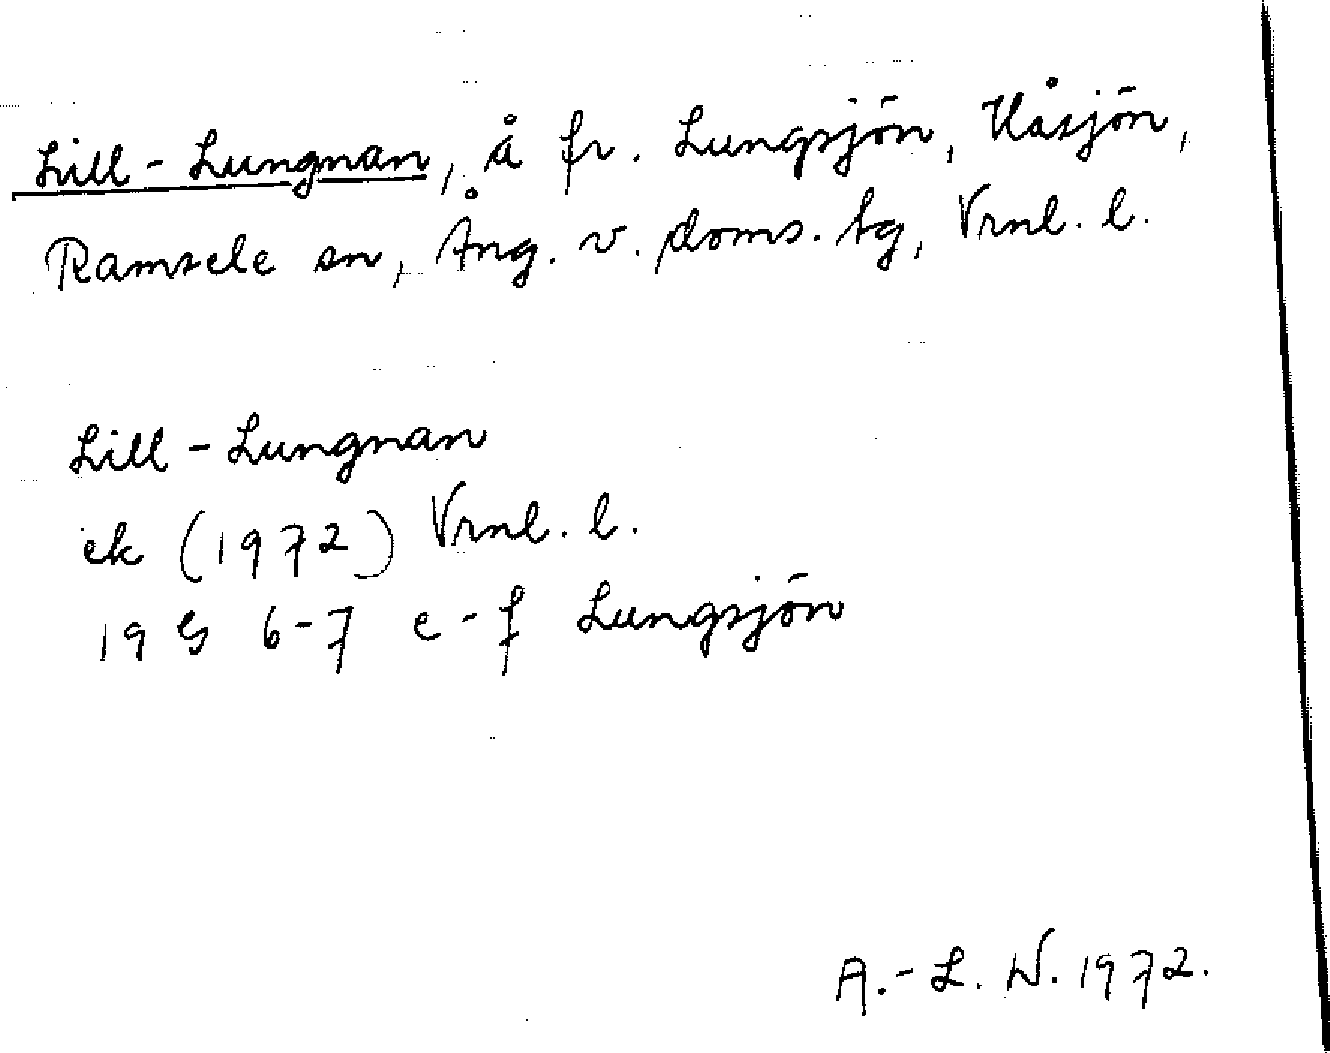 Lill-Lungnan, å fr. Lungsjön, Kåsjön,
Ramsele sn, Ång. v. doms. tg, Vrnl. l.
Lill-Lungnan
ek (1972) Vrnl. l.
19 G 6-7 e-f Lungsjön
A.-L. N. 1972.